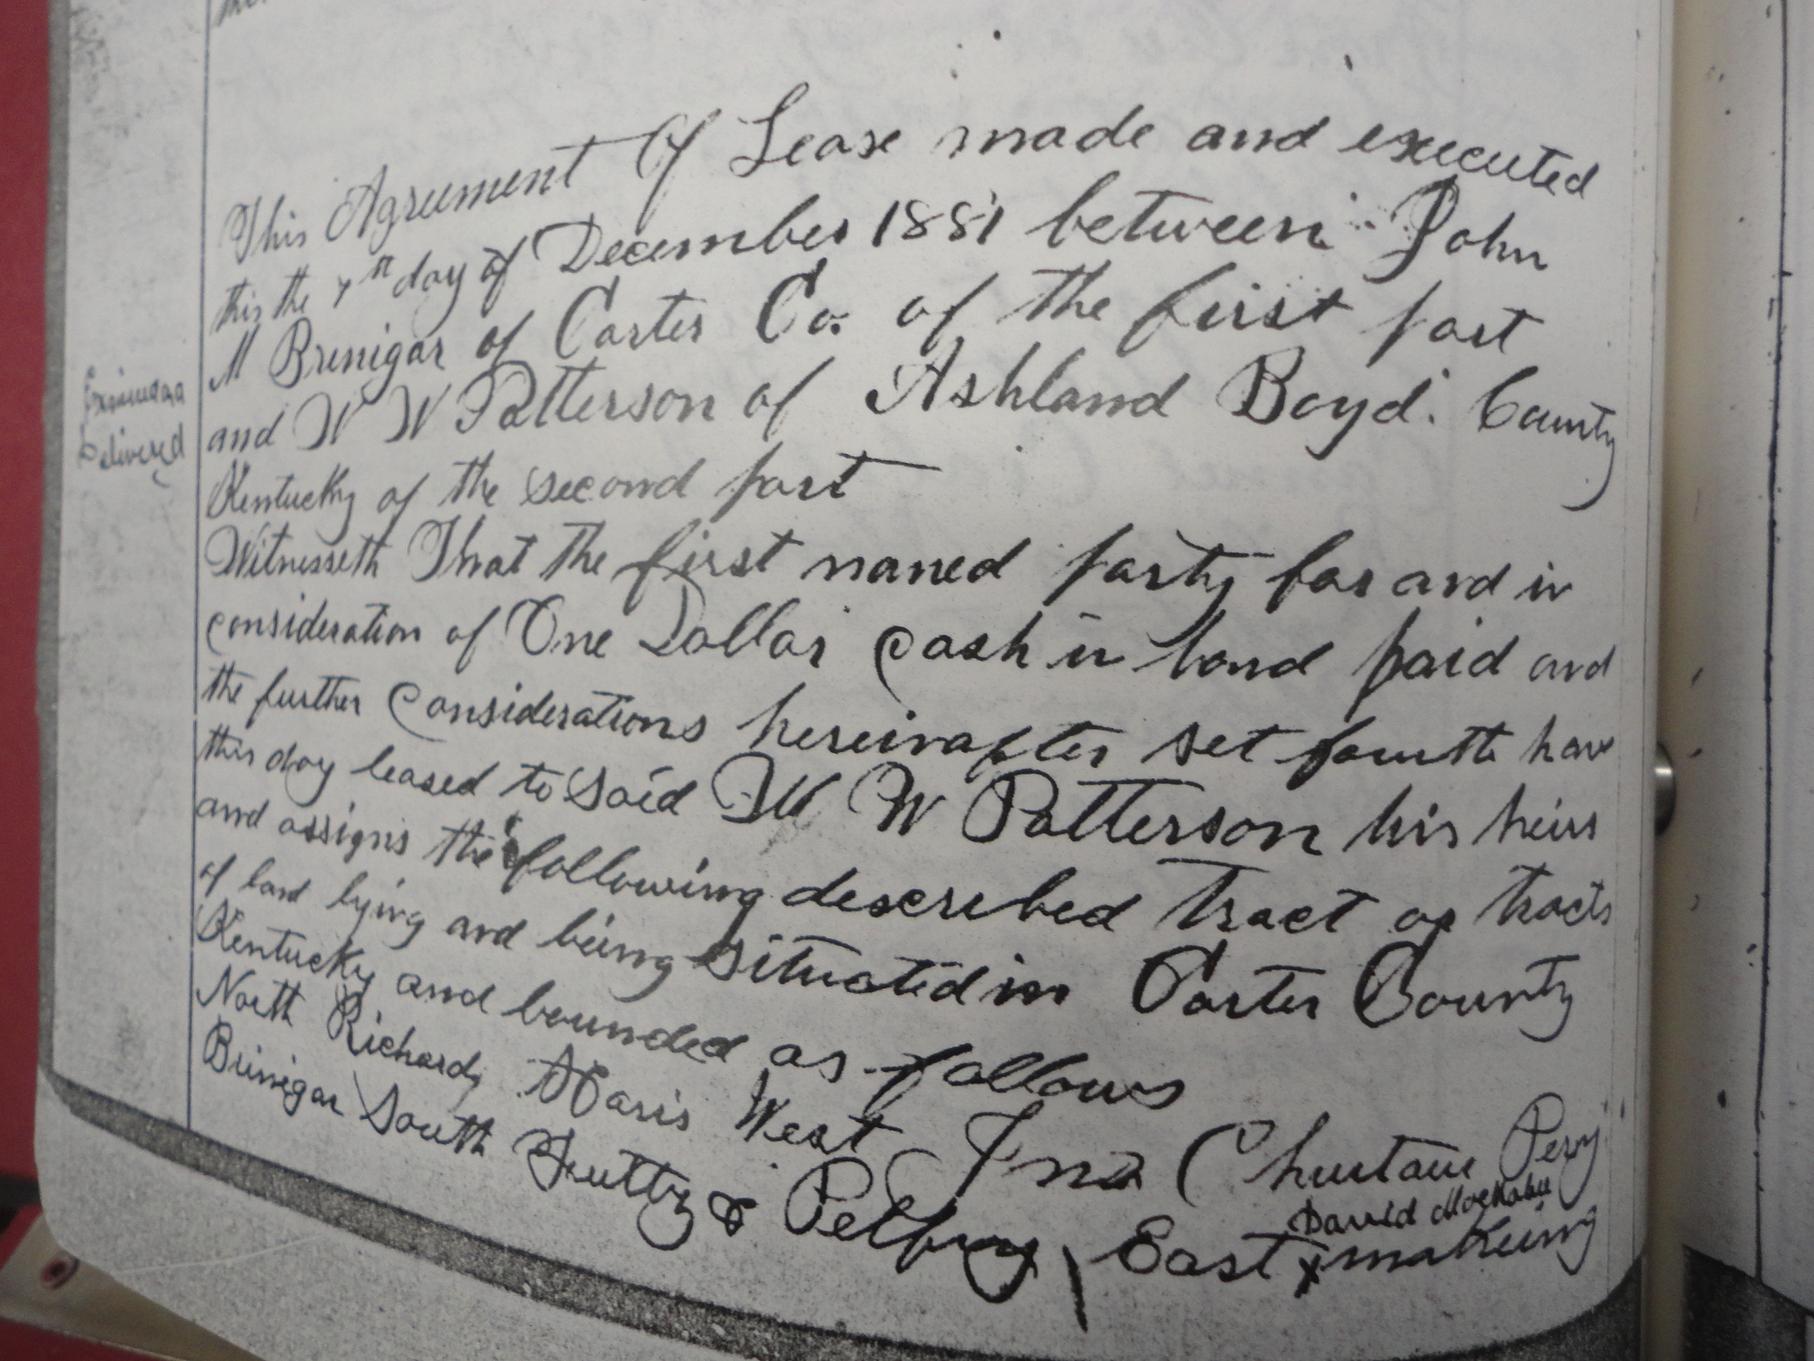 This Agrument Of Lease made and executed
this the 7th day of December 1881 between John
M Brenigar of Carter Co. of the first part
and W W Patterson of Ashland Boyd. County
Kentucky of the second part
Witnesseth That the first named party for and in
consideration of One Dollar cash in hand paid and
the further Considerations hereinafter set fourth have
this day leased to Said W W Patterson his heirs
and assigns the following described tract or tracts
of land lying and being situated in Carter County
Kentucky and bounded as follows
North Richardy Haris West Jno Perry
Brinigar South &  East x making
David
Delivered